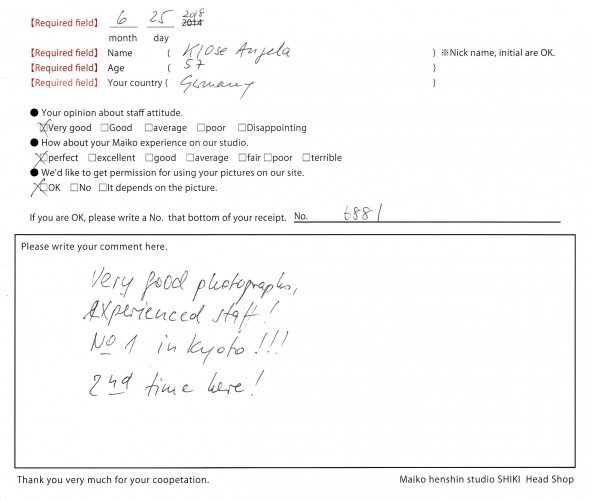 【Required field】 6 25 2018 2014
month day
【Required field】 Name ( Klose Angela ) ※Nick name, initial are OK.
【Required field】 Age ( 57 )
【Required field】 Your country ( Germany )
● Your opinion about staff attitude.
☒Very good □Good □average □poor □Disappointing
● How about your Maiko experience on our studio.
☒perfect □excellent □good □average □fair □poor □terrible
● We'd like to get permission for using your pictures on our site.
☒OK □No □It depends on the picture.
If you are OK, please write a No. that bottom of your receipt. No. 6881
Please write your comment here.
Very good photographs,
experienced staff!
No 1 in Kyoto!!!
2nd time here!
Thank you very much for your coopetation. Maiko henshin studio SHIKI Head Shop